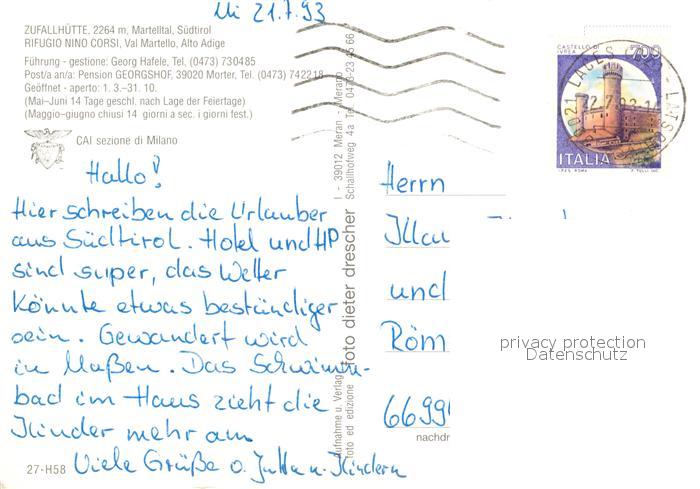 Mi 21.7.93
ZUFALLHÜTTE, 2264 m, Martelltal, Südtirol
RIFUGIO NINO CORSI, Val Martello, Alto Adige
Führung - gestione: Georg Hafele, Tel. (0473) 730485
Post/an a/a: Pension GEORGSHOF, 39020 Morter, Tel. (0473) 742218
Geöffnet - aperto: 1. 3.–31. 10.
(Mai–Juni 14 Tage geschl. nach Lage der Feiertage)
(Maggio–giugno chiusi 14 giorni a sec. i giorni fest.)
CAI sezione di Milano
Hallo!
Hier schreiben die Urlauber
aus Südtirol. Hotel und HP
sind super, das Wetter
könnte etwas beständiger
sein. Gewandert wird
in Maßen. Das Schwimm-
bad im Haus zieht die
Kinder mehr an.
Viele Grüße v. Jutta u. Kindern
27-H58
Aufnahme u. Verlag
foto ed edizione
foto dieter drescher
I - 39012 Meran - Merano
Schallhofweg 4a Tel. 0473-23 45 66
CASTELLO DI
IVREA
700
ITALIA
I.P.Z.S. ROMA
39021 LACES - LATSCH
Herrn
Klau
und
Röm
6699
nachdr
privacy protection
Datenschutz